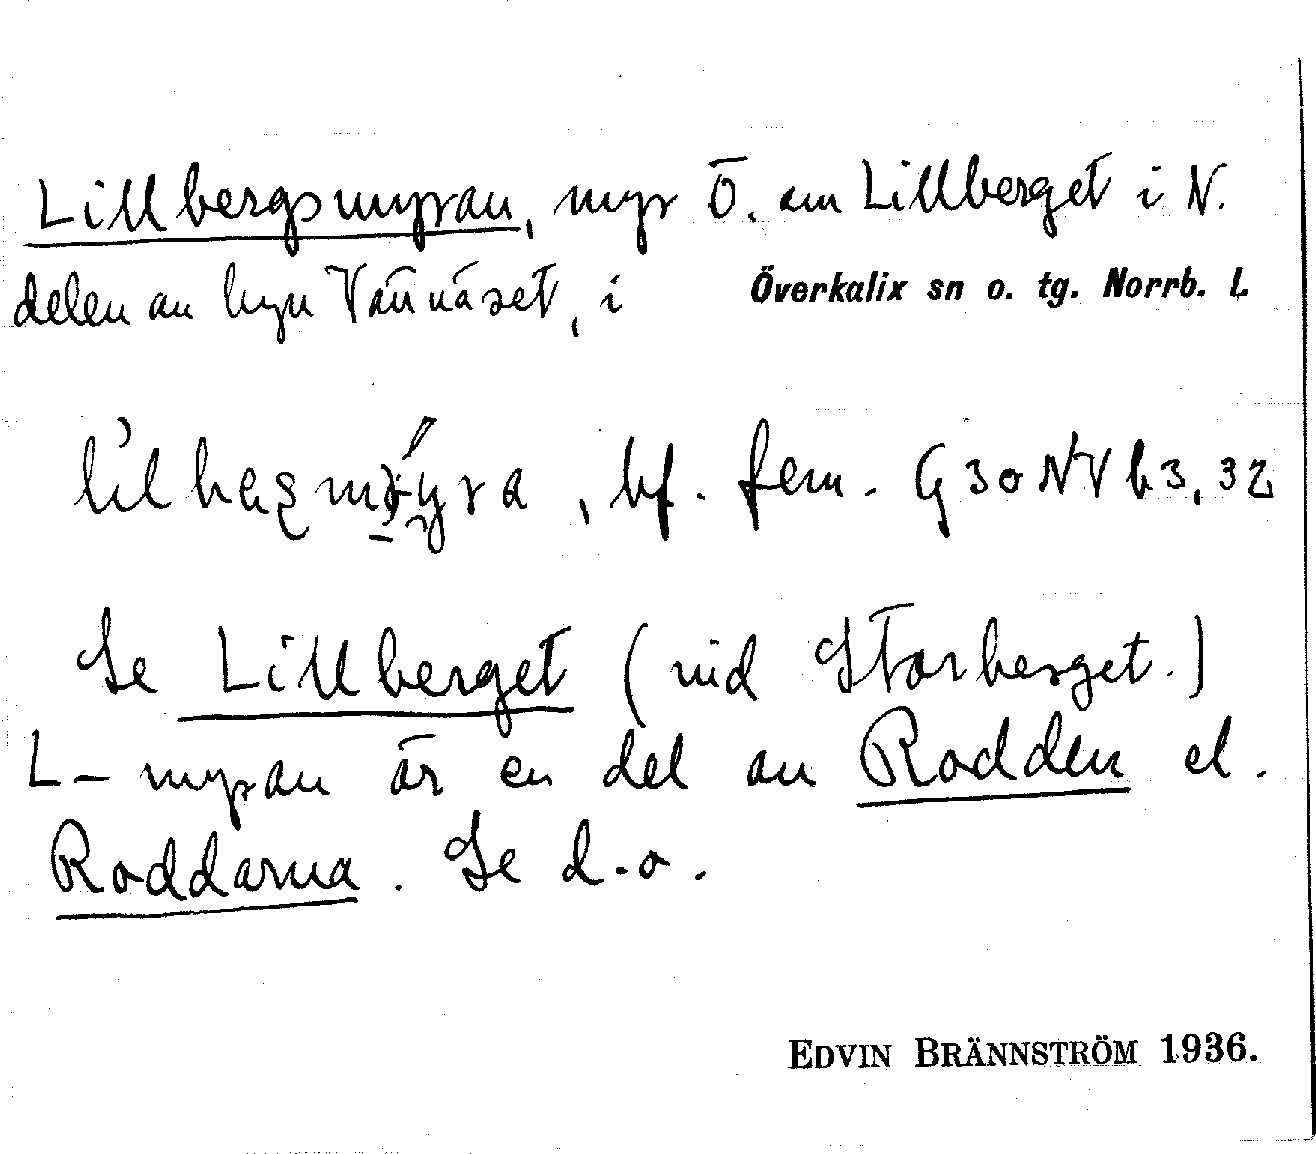 Lillbergsmyran, myr Ö. om Lillberget i N.
delen av byn Vännäset, i Överkalix sn o. tg. Norrb. L
, bf. fem. G30NVb3,32
Se Lillberget (vid Storberget.)
L– myran är en del av Rodden el.
Roddarna. Se d.o.
EDVIN BRÄNNSTRÖM 1936.